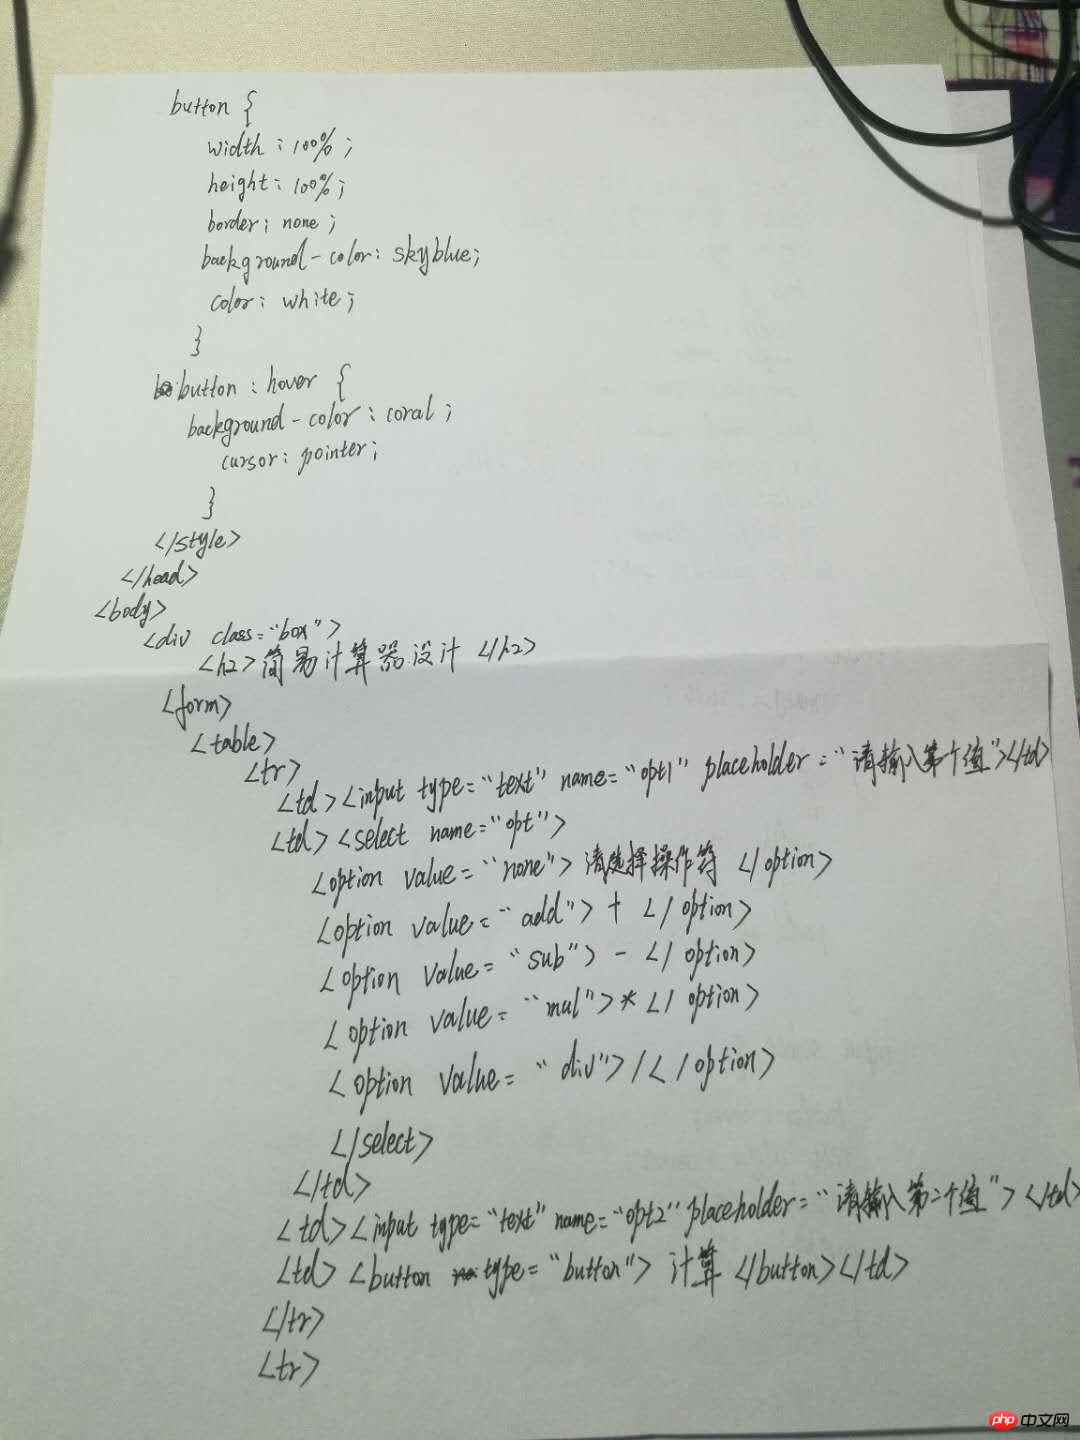 button {
width : 100% ;
height : 100% ;
border : none ;
background-color : skyblue;
color : white ;
}
button : hover {
background-color : coral ;
cursor : pointer ;
}
</style>
</head>
<body>
<div class="box">
<h2>简易计算器设计 </h2>
<form>
<table>
<tr>
<td><input type="text" name="opt1" placeholder="请输入第个值"></td>
<td><select name="opt">
<option value="none">请选择操作符 </option>
<option value="add">+ </option>
<option value="sub">- </option>
<option value="mul">* </option>
<option value="div">/ </option>
</select>
</td>
<td><input type="text" name="opt2" placeholder="请输入第二个值"></td>
<td><button type="button"> 计算 </button></td>
</tr>
<tr>
php 中文网